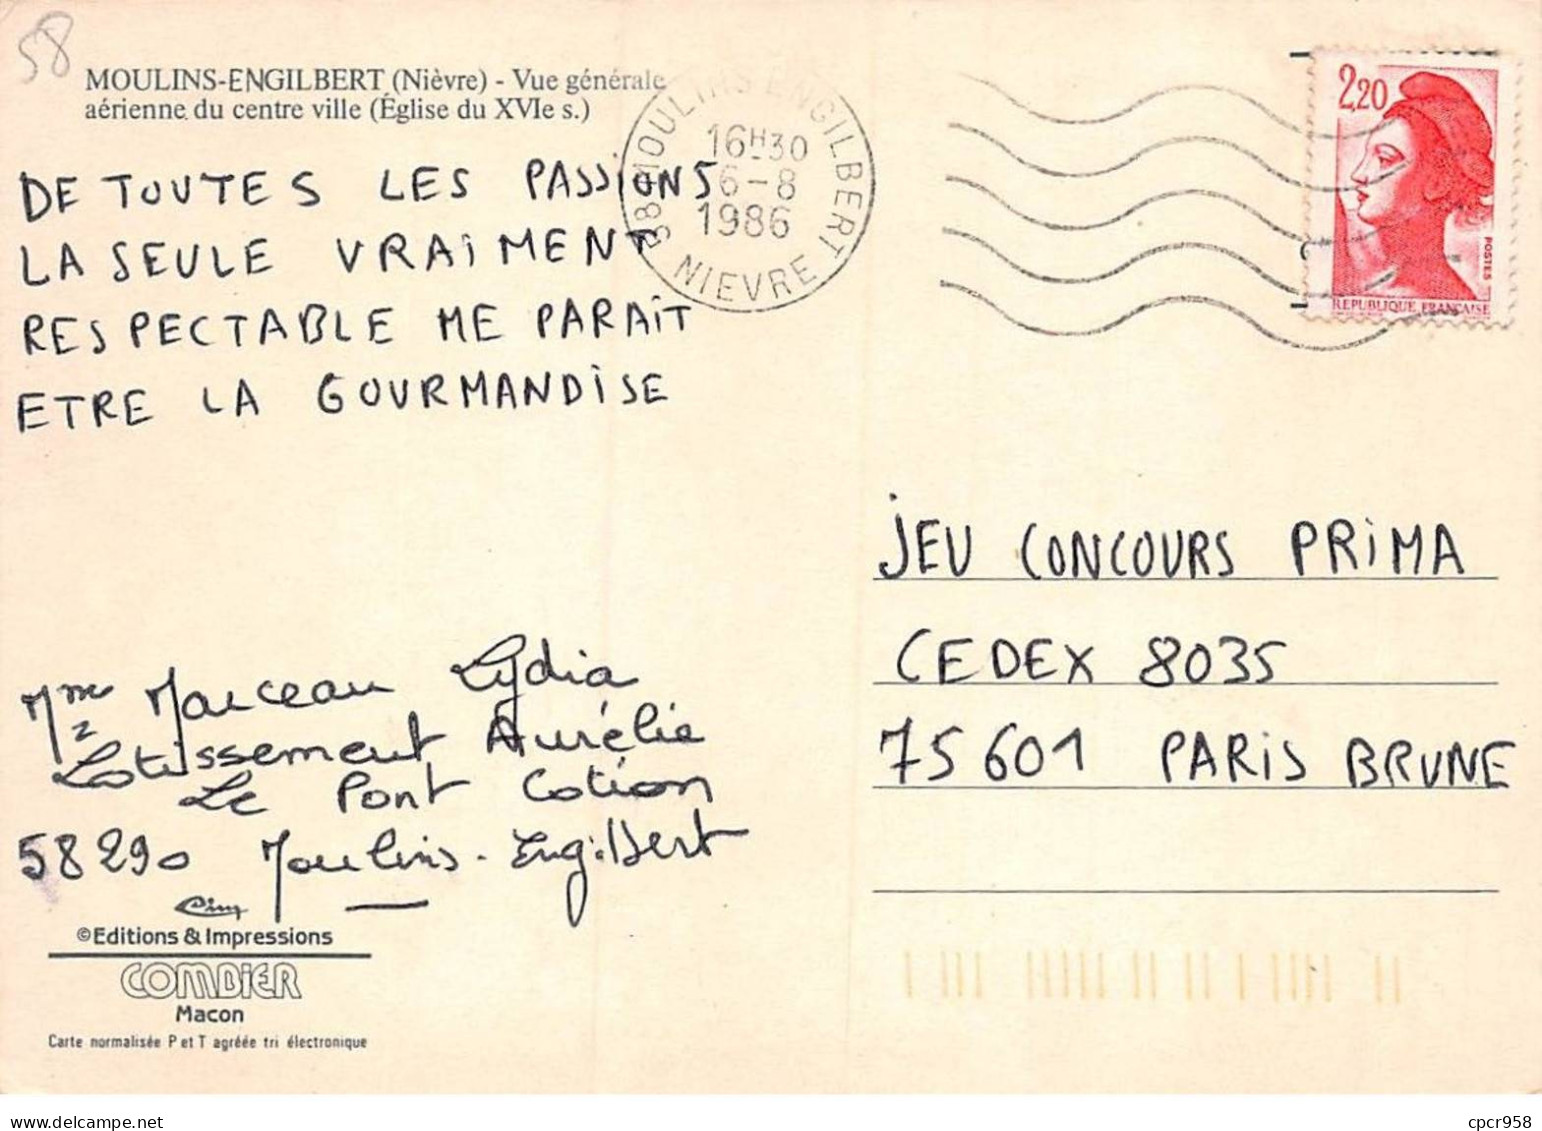 58
MOULINS-ENGILBERT (Nièvre) - Vue générale
aérienne du centre ville (Église du XVIe s.)
58 MOULINS ENGILBERT
16H30
6-8
1986
NIEVRE
2,20
POSTES
REPUBLIQUE FRANÇAISE
DE TOUTES LES PASSIONS
LA SEULE VRAIMENT
RESPECTABLE ME PARAIT
ETRE LA GOURMANDISE
JEU CONCOURS PRIMA
CEDEX 8035
75601 PARIS BRUNE
Mme Marceau Lydia
Lotissement Aurélie
Le Pont Cotion
58290 Moulins-Engilbert
Cim
©Editions & Impressions
COMBIER
Macon
Carte normalisée P et T agréée tri électronique
cpcr958